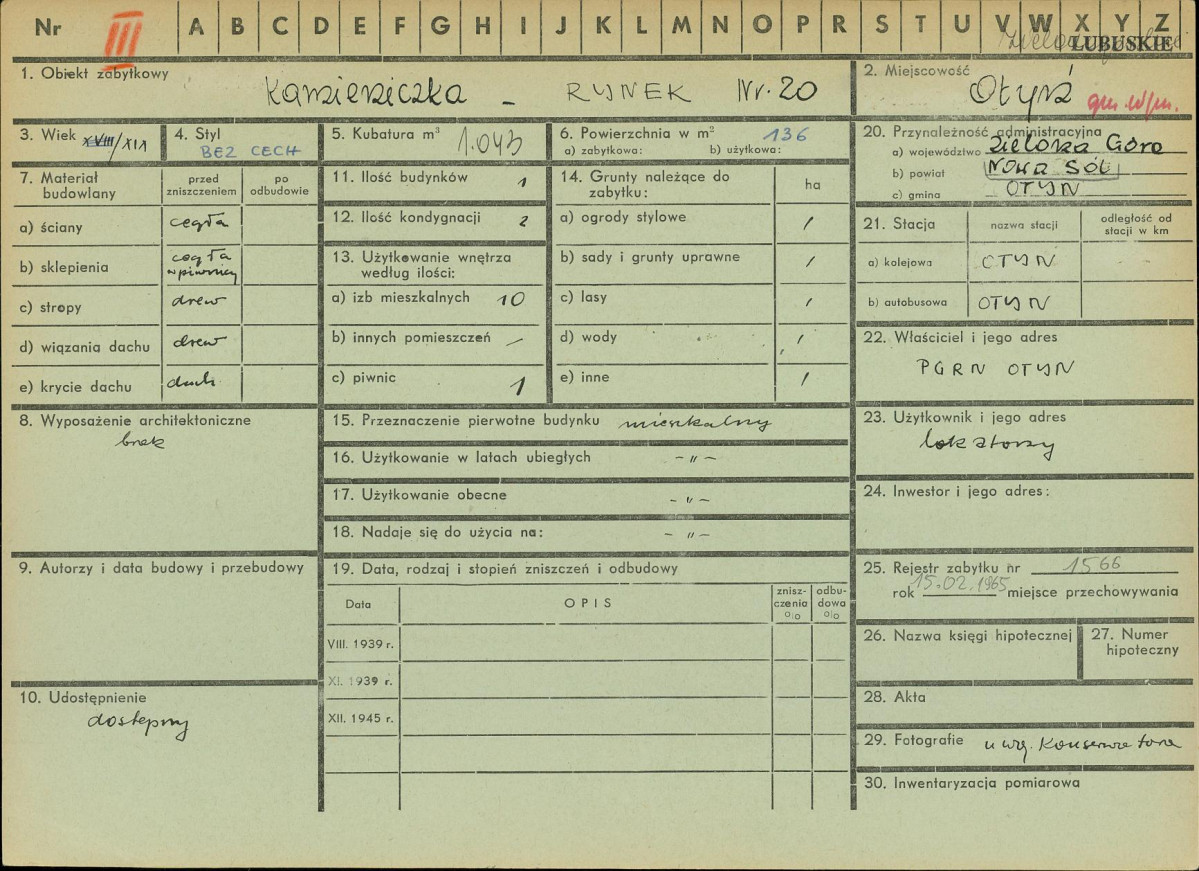 Nr III A B C D E F G H I J K L M N O P R S T U V W X Y Z
LUBUSKIE
1. Obiekt zabytkowy
Kamieniczka – RYNEK Nr. 20
2. Miejscowość
Otyń
gm. w/m.
3. Wiek XVIII/XIX
4. Styl
BEZ CECH
5. Kubatura m³ 1.043
6. Powierzchnia w m² 136
a) zabytkowa: b) użytkowa:
20. Przynależność administracyjna
a) województwo Zielona Góra
b) powiat Nowa Sól
c) gmina OTYŃ
7. Materiał budowlany
przed zniszczeniem
po odbudowie
a) ściany cegła
b) sklepienia cegła w piwnicy
c) stropy drew
d) wiązania dachu drew
e) krycie dachu dach.
11. Ilość budynków 1
12. Ilość kondygnacji 2
13. Użytkowanie wnętrza według ilości:
a) izb mieszkalnych 10
b) innych pomieszczeń –
c) piwnic 1
14. Grunty należące do zabytku:
ha
a) ogrody stylowe /
b) sady i grunty uprawne /
c) lasy /
d) wody /
e) inne /
21. Stacja
nazwa stacji
odległość od stacji w km
a) kolejowa OTYŃ
b) autobusowa OTYŃ
22. Właściciel i jego adres
PGRN OTYŃ
8. Wyposażenie architektoniczne
brak
15. Przeznaczenie pierwotne budynku mieszkalny
16. Użytkowanie w latach ubiegłych – „ –
17. Użytkowanie obecne – „ –
18. Nadaje się do użycia na: – „ –
23. Użytkownik i jego adres
lokatorzy
24. Inwestor i jego adres:
9. Autorzy i data budowy i przebudowy
19. Data, rodzaj i stopień zniszczeń i odbudowy
Data
OPIS
znisz-czenia %
odbu-dowa %
VIII. 1939 r.
XI. 1939 r.
XII. 1945 r.
25. Rejestr zabytku nr 1566
rok 15.02.1965 miejsce przechowywania
26. Nazwa księgi hipotecznej
27. Numer hipoteczny
10. Udostępnienie
dostępny
28. Akta
29. Fotografie u woj. Konserwatora
30. Inwentaryzacja pomiarowa